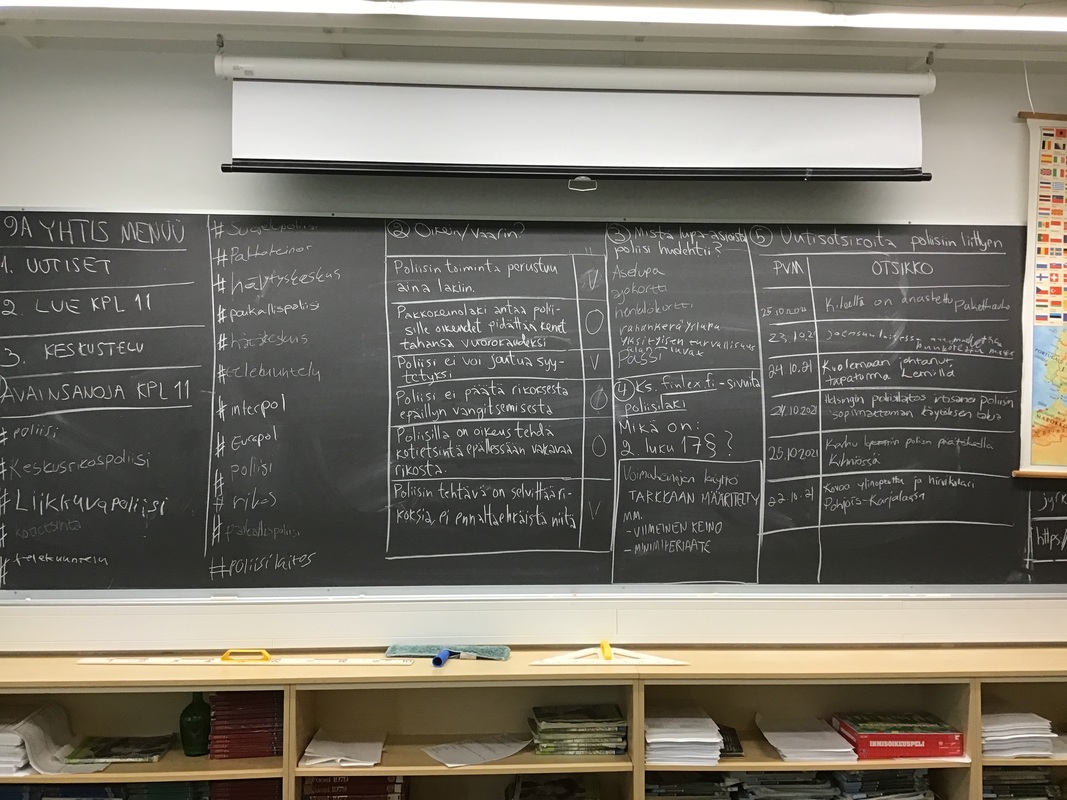 9A YHTIS MENUU
1. UUTISET
2. LUE KPL 11
3. KESKUSTELU
AVAINSANOJA KPL 11
# poliisi
#Keskusrikospoliisi
#Liikkuvapoliisi
# kotietsintä
# telekuuntelu
# Suojelupoliisi
#Pakkokeinot
# hälytyskeskus
#paikallispoliisi
# hätäkeskus
#telekuuntelu
#interpol
# Europol
# poliisi
# rikos
# paikallispoliisi
#poliisilaitos
② Oikein/Väärin?
Poliisin toiminta perustuu
aina lakiin.
V
Pakkokeinolaki antaa polii-
sille oikeudet pidättää kenet
tahansa vuorokaudeksi
O
Poliisi ei voi joutua syy-
tetyksi
V
Poliisi ei päätä rikoksesta
epäillyn vangitsemisesta
O
Poliisilla on oikeus tehdä
kotietsintä epäillessään vakavaa
rikosta.
O
Poliisin tehtävä on selvittää ri-
koksia, ei ennaltaehkäistä niitä
V
③ Mistä lupa-asioista
poliisi huolehtii?
Aselupa
ajokortti
henkilökortti
rahankeräyslupa
yksityisen turvallisuus
alan luvat
passi
④ Ks. finlex.fi -sivuita
poliisilaki
Mikä on:
2. luku 17§?
Voimakeinojen käyttö
TARKKAAN MÄÄRITELTY
mm.
- VIIMEINEN KEINO
- MINIMIPERIAATE
⑤ Uutisotsikoita poliisiin liittyen
PVM
OTSIKKO
25.10.2021 on anastettu pakettiauto
23.10.21
24.10.21 Kuolemaan johtanut
tapaturma Lemillä
24.10.2021 Helsingin poliisilaitos irtisanoi poliisin
sopimattoman käytöksen takia
25.10.2021 Karhu
Kihniössä
22.10.21
Pohjois-Karjalassa
jyrk
https:/
IHMISOIKEUSPELI